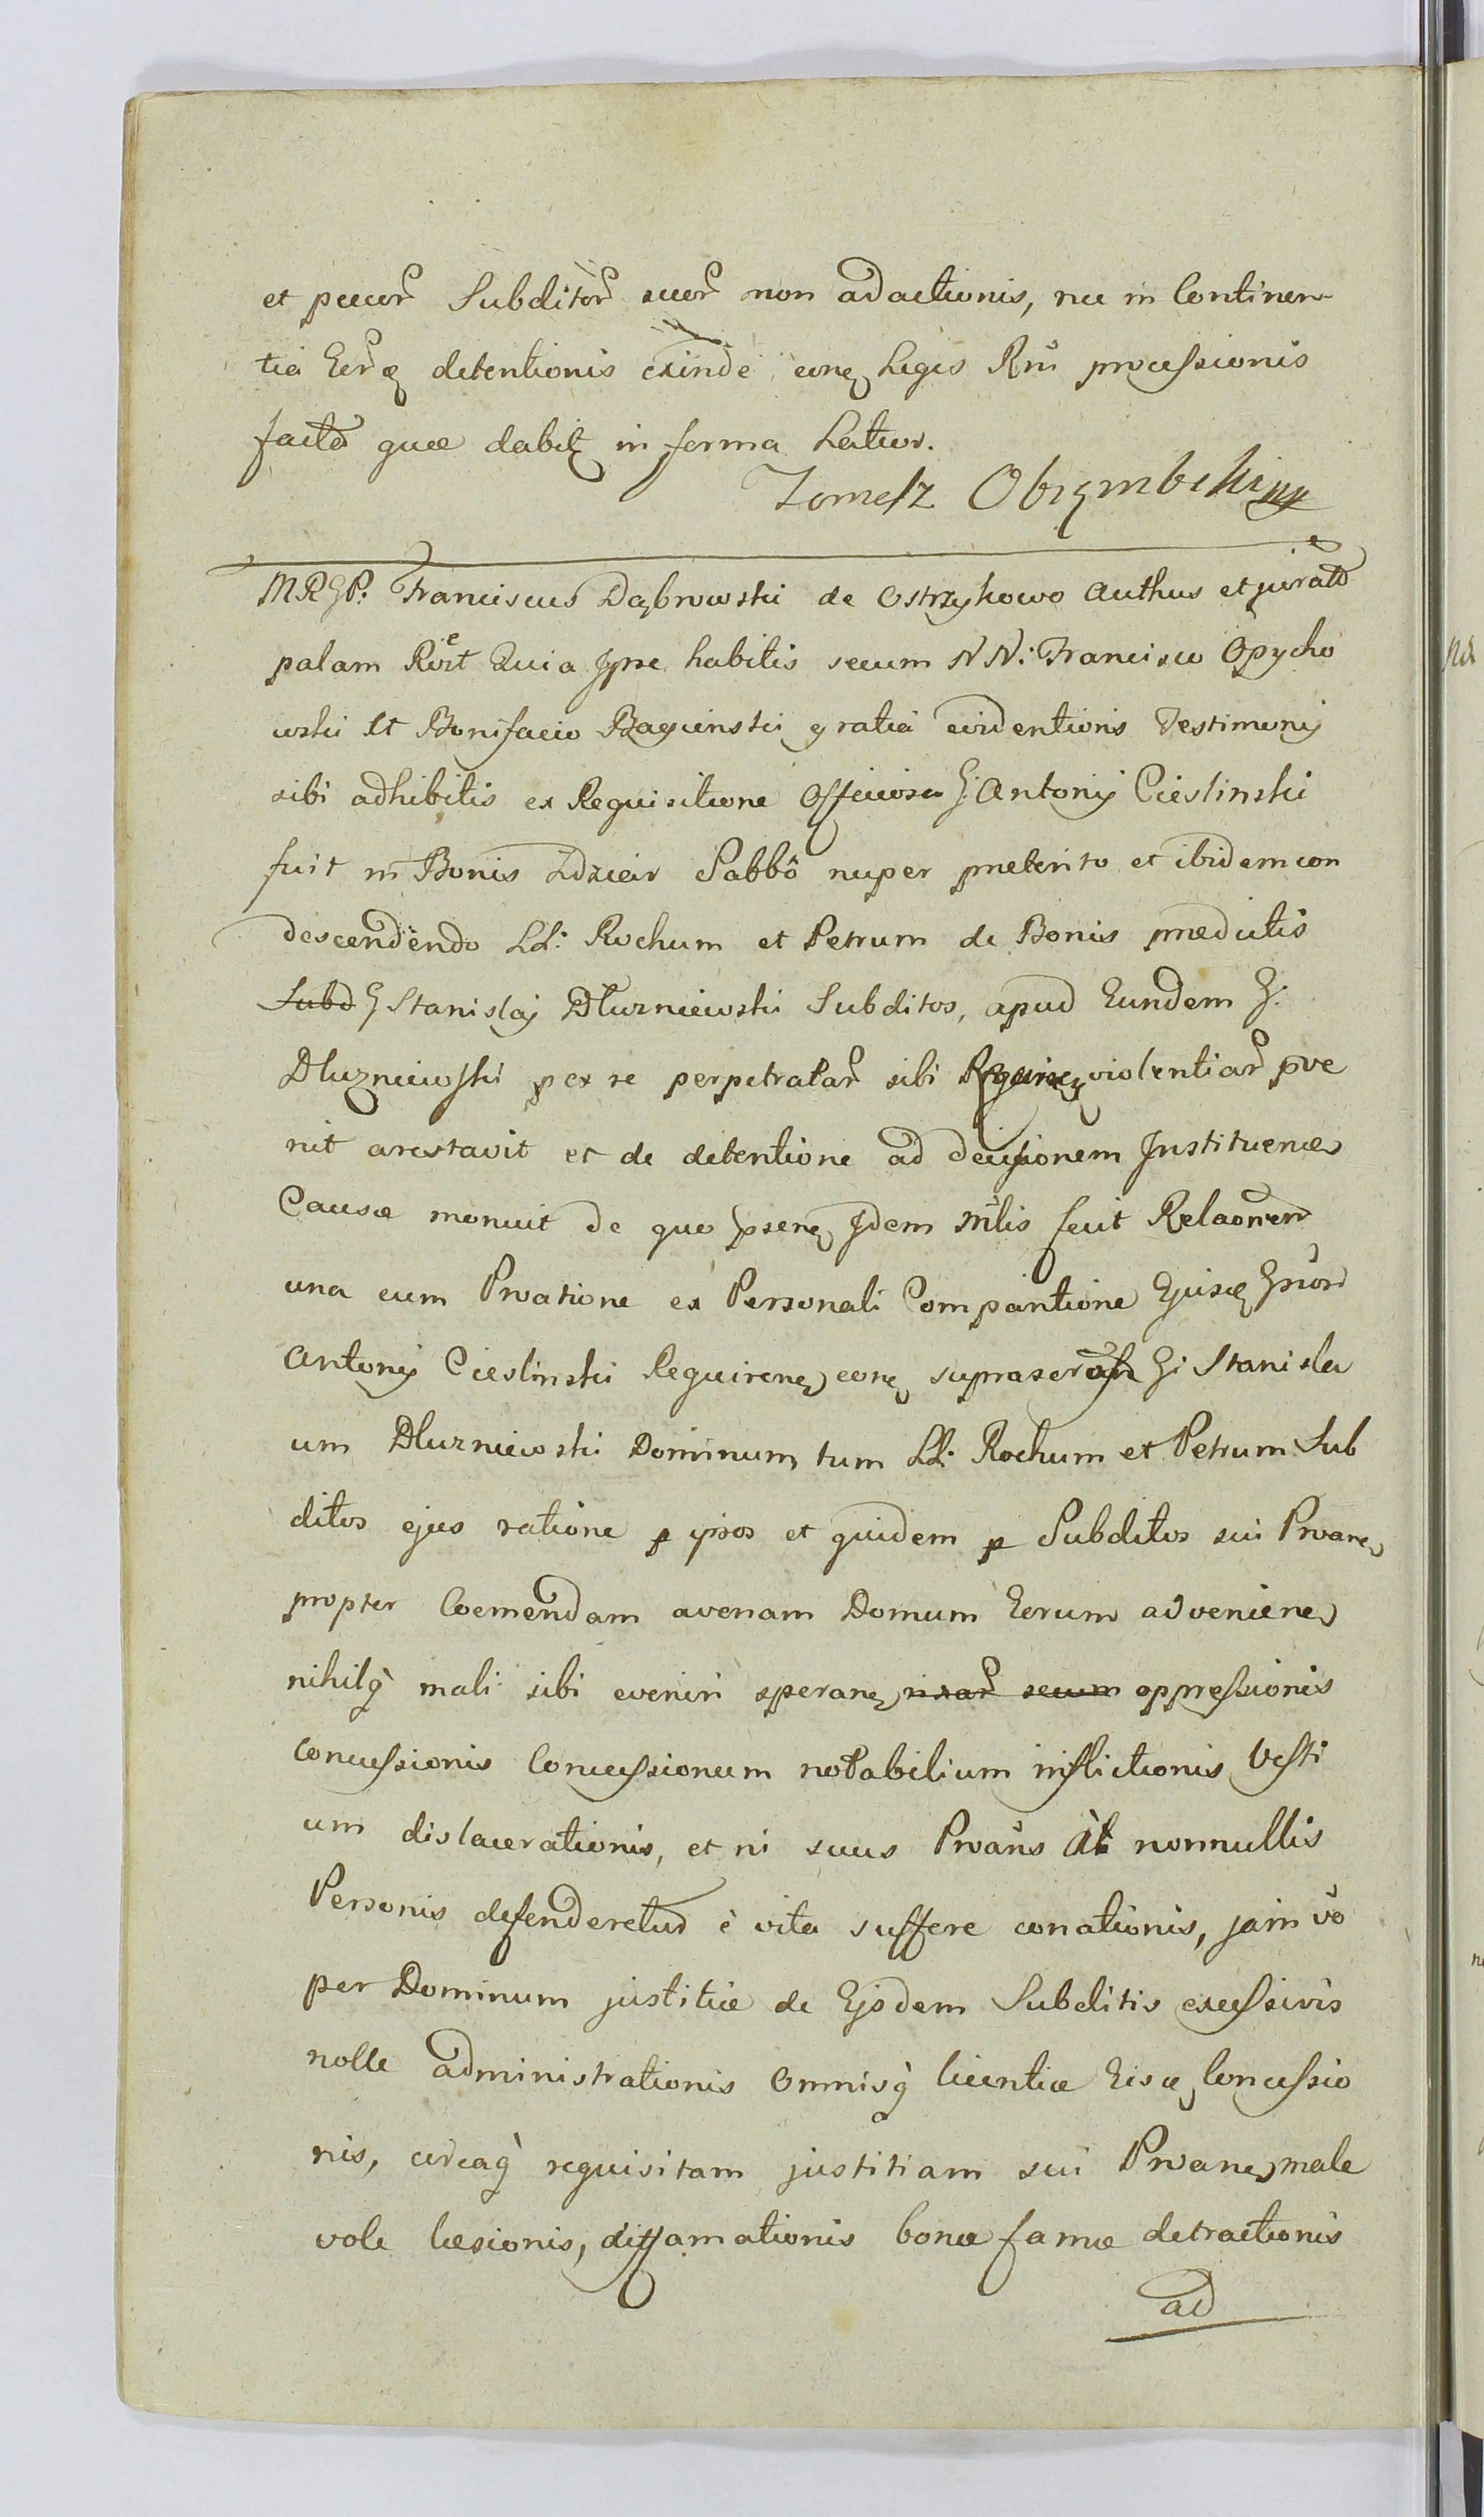 et pecor Subditor suor non adactionis, nec in Continen-
tia Eorq detentionis exinde eonq Leges Rni processionis
facto quae dabit in forma Latior.
Tomasz Obrembski mp
MRGP. Franciscus Dąbrowski de Ostrzykowo Authus et jurato
palam Rixt Quia Ipse habitis secum NN: Francisco Opycho
wski et Bonifacio Bagienski gratia evidentioris Testimony
sibi adhibitis ex Requisitione Officiosa G: Antonij Cieslinski
fuit in Bonis Zdzieir Sabbô nuper praeterito et ibidem con
descendendo LL: Rochum et Petrum de Bonis praedictis
Subd G Stanislaj Dluzniewski Subditos, apud Eundem G:
Dluzniewski ex re perpetratar sibi Requirenq violentiar pve
nit arestavit et de detentione ad decisionem Instituenae
Causae monuit de quo psenq Idem Mlis fecit Relaonem
una cum Proatione ex Personali Comparitione Ejusq Gnor
Antonij Cieslinski Requirenq eonq suprascr G: Stanisla
um Dluzniewski Dominum tum LL: Rochum et Petrum Sub
ditos ejus ratione p ipsos et quidem p Subditos sui Proane
propter Coemendam avenam Domum Eorum adveniene
nihilq mali sibi eveniri speranq rixar secum oppressionis
concussionis Concussionum notabilium inflictionis Vesti
um dislacerationis, et ni suus Proans ab nonnullis
Personis defenderetur è vita suffere conationis, jam vo
per Dominum justitiae de Ejsdem Subditis excessivis
nolle administrationis omnisq licentiae Eisq Concessio
nis, circaq requisitam justitiam sui Proane male
vole laesionis, diffamationis bonae famae detractionis
ad